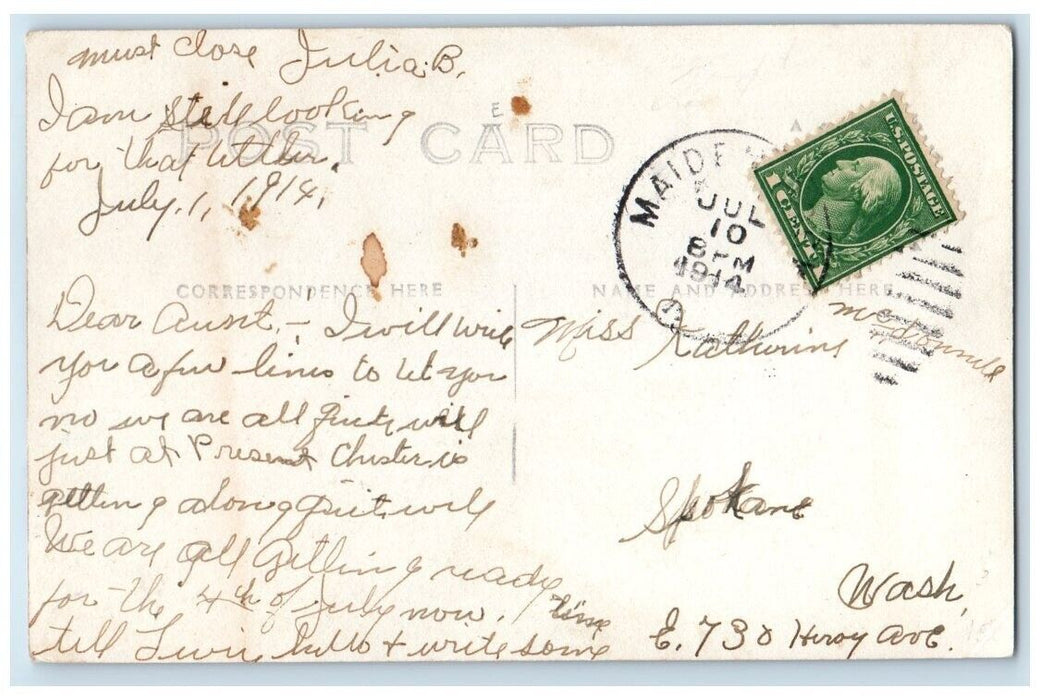 must close Julia B.
I am still looking
for that letter.
July. 1, 1914,
POST CARD
MAIDE
JUL
10
8 PM
1914
U.S. POSTAGE
1 CENT 1
CORRESPONDENCE HERE
NAME AND ADDRESS HERE
Dear Aunt,- I will write
you a few lines to let you
no we are all quite well
just at Present Chester is
getting along quite well
We are all getting ready
for the 4th of july now.
tell hello & write some
Miss Katherine
Spokane
Wash,
E. 730 Ave.